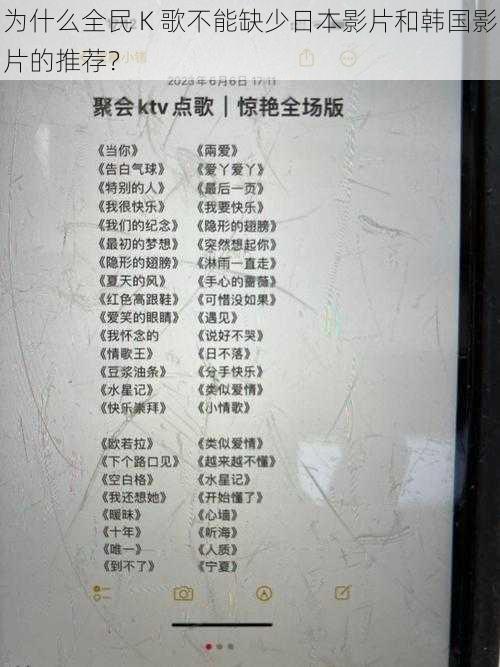 为什么全民 K 歌不能缺少日本影片和韩国影片的推荐？
2023年6月6日 17:11
聚会ktv点歌｜惊艳全场版
《当你》 《兩爱》
《告白气球》 《爱丫爱丫》
《特别的人》 《最后一页》
《我很快乐》 《我要快乐》
《我们的纪念》 《隐形的翅膀》
《最初的梦想》 《突然想起你》
《隐形的翅膀》 《淋雨一直走》
《夏天的风》 《手心的蔷薇》
《红色高跟鞋》 《可惜没如果》
《爱笑的眼睛》 《遇见》
《我怀念的 《说好不哭》
《情歌王》 《日不落》
《豆浆油条》 《分手快乐》
《水星记》 《类似爱情》
《快乐崇拜》 《小情歌》
《欧若拉》 《类似爱情》
《下个路口见》 《越来越不懂》
《空白格》 《水星记》
《我还想她》 《开始懂了》
《暖昧》 《心墙》
《十年》 《听海》
《唯一》 《人质》
《到不了》 《宁夏》